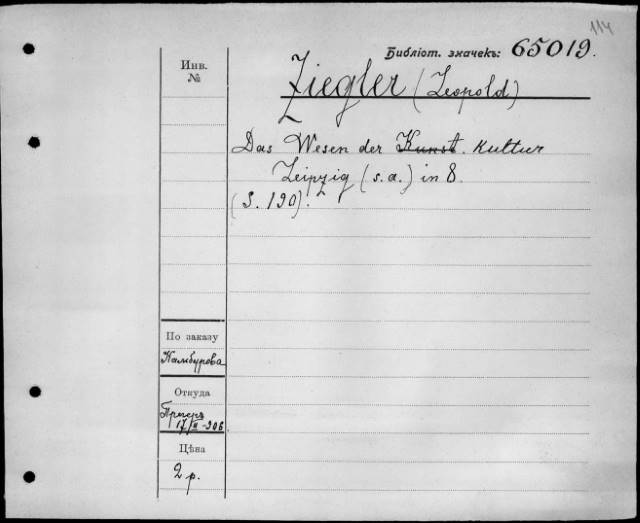 114
Библіот. значекъ: 65019.
Инв.
№
Ziegler (Leopold)
Das Wesen der Kunst. Kultur
Leipzig (s.a.) in 8.
(S. 190).
По заказу
Камбурова
Откуда
17/II-906
Цѣна
2 р.